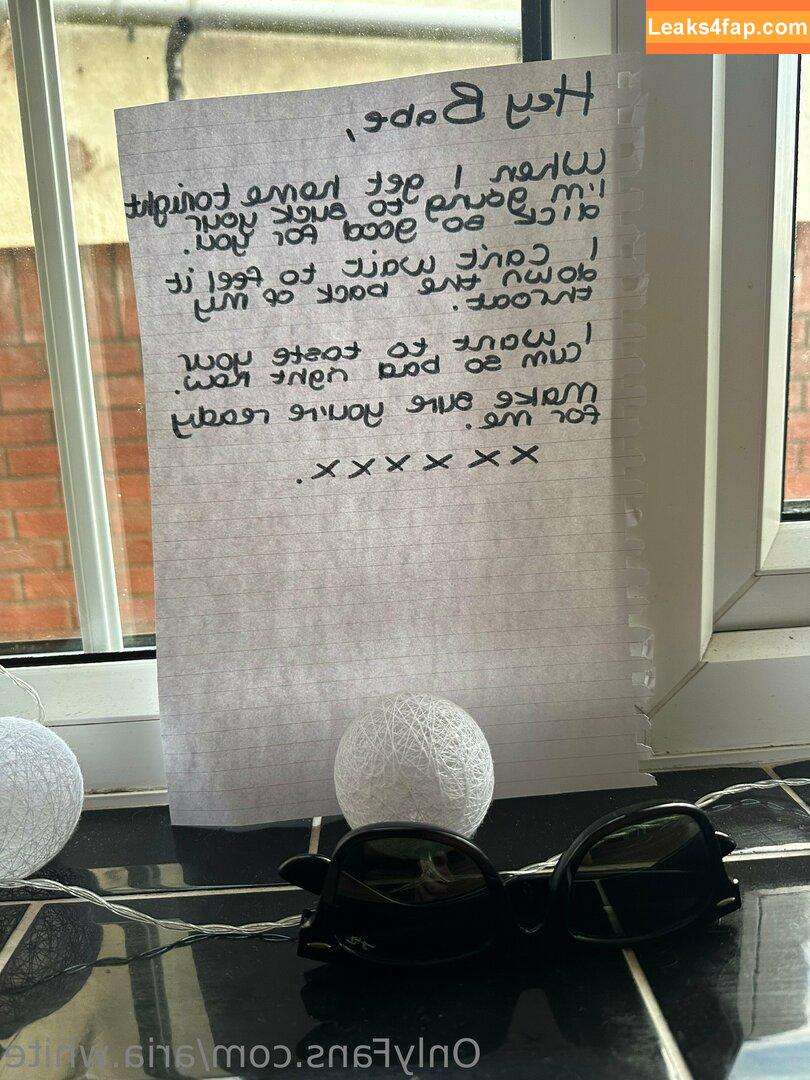 Leaks4fap.com
Hey Babe,
When I get home tonight
I'm going to suck your
dick so good for you.
I can't wait to feel it
down the back of my
throat.
I want to taste your
cum so bad right now.
Make sure you're ready
for me.
x x x x x x x.
OnlyFans.com/aria.white